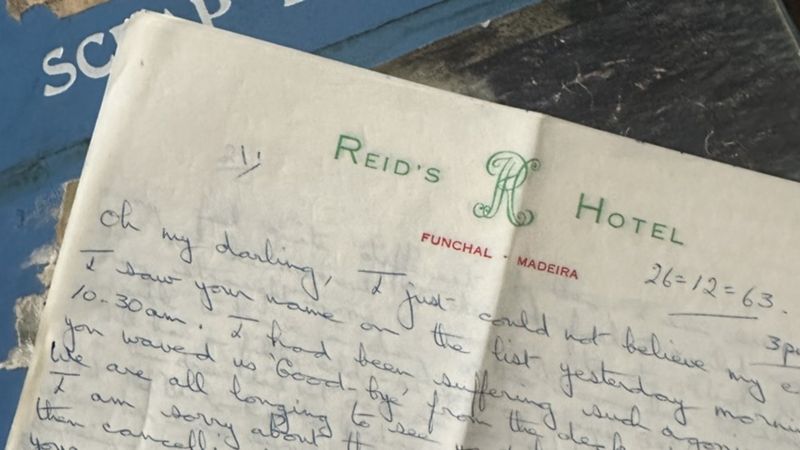 SCRAP
1.
REID'S HOTEL
FUNCHAL · MADEIRA
26=12=63.
Oh my darling, I just could not believe my
I saw your name on the list yesterday
10-30am. I had been suffering such
you waved us 'Good-bye' from the deck
We are all longing to see
I am sorry about
then
you